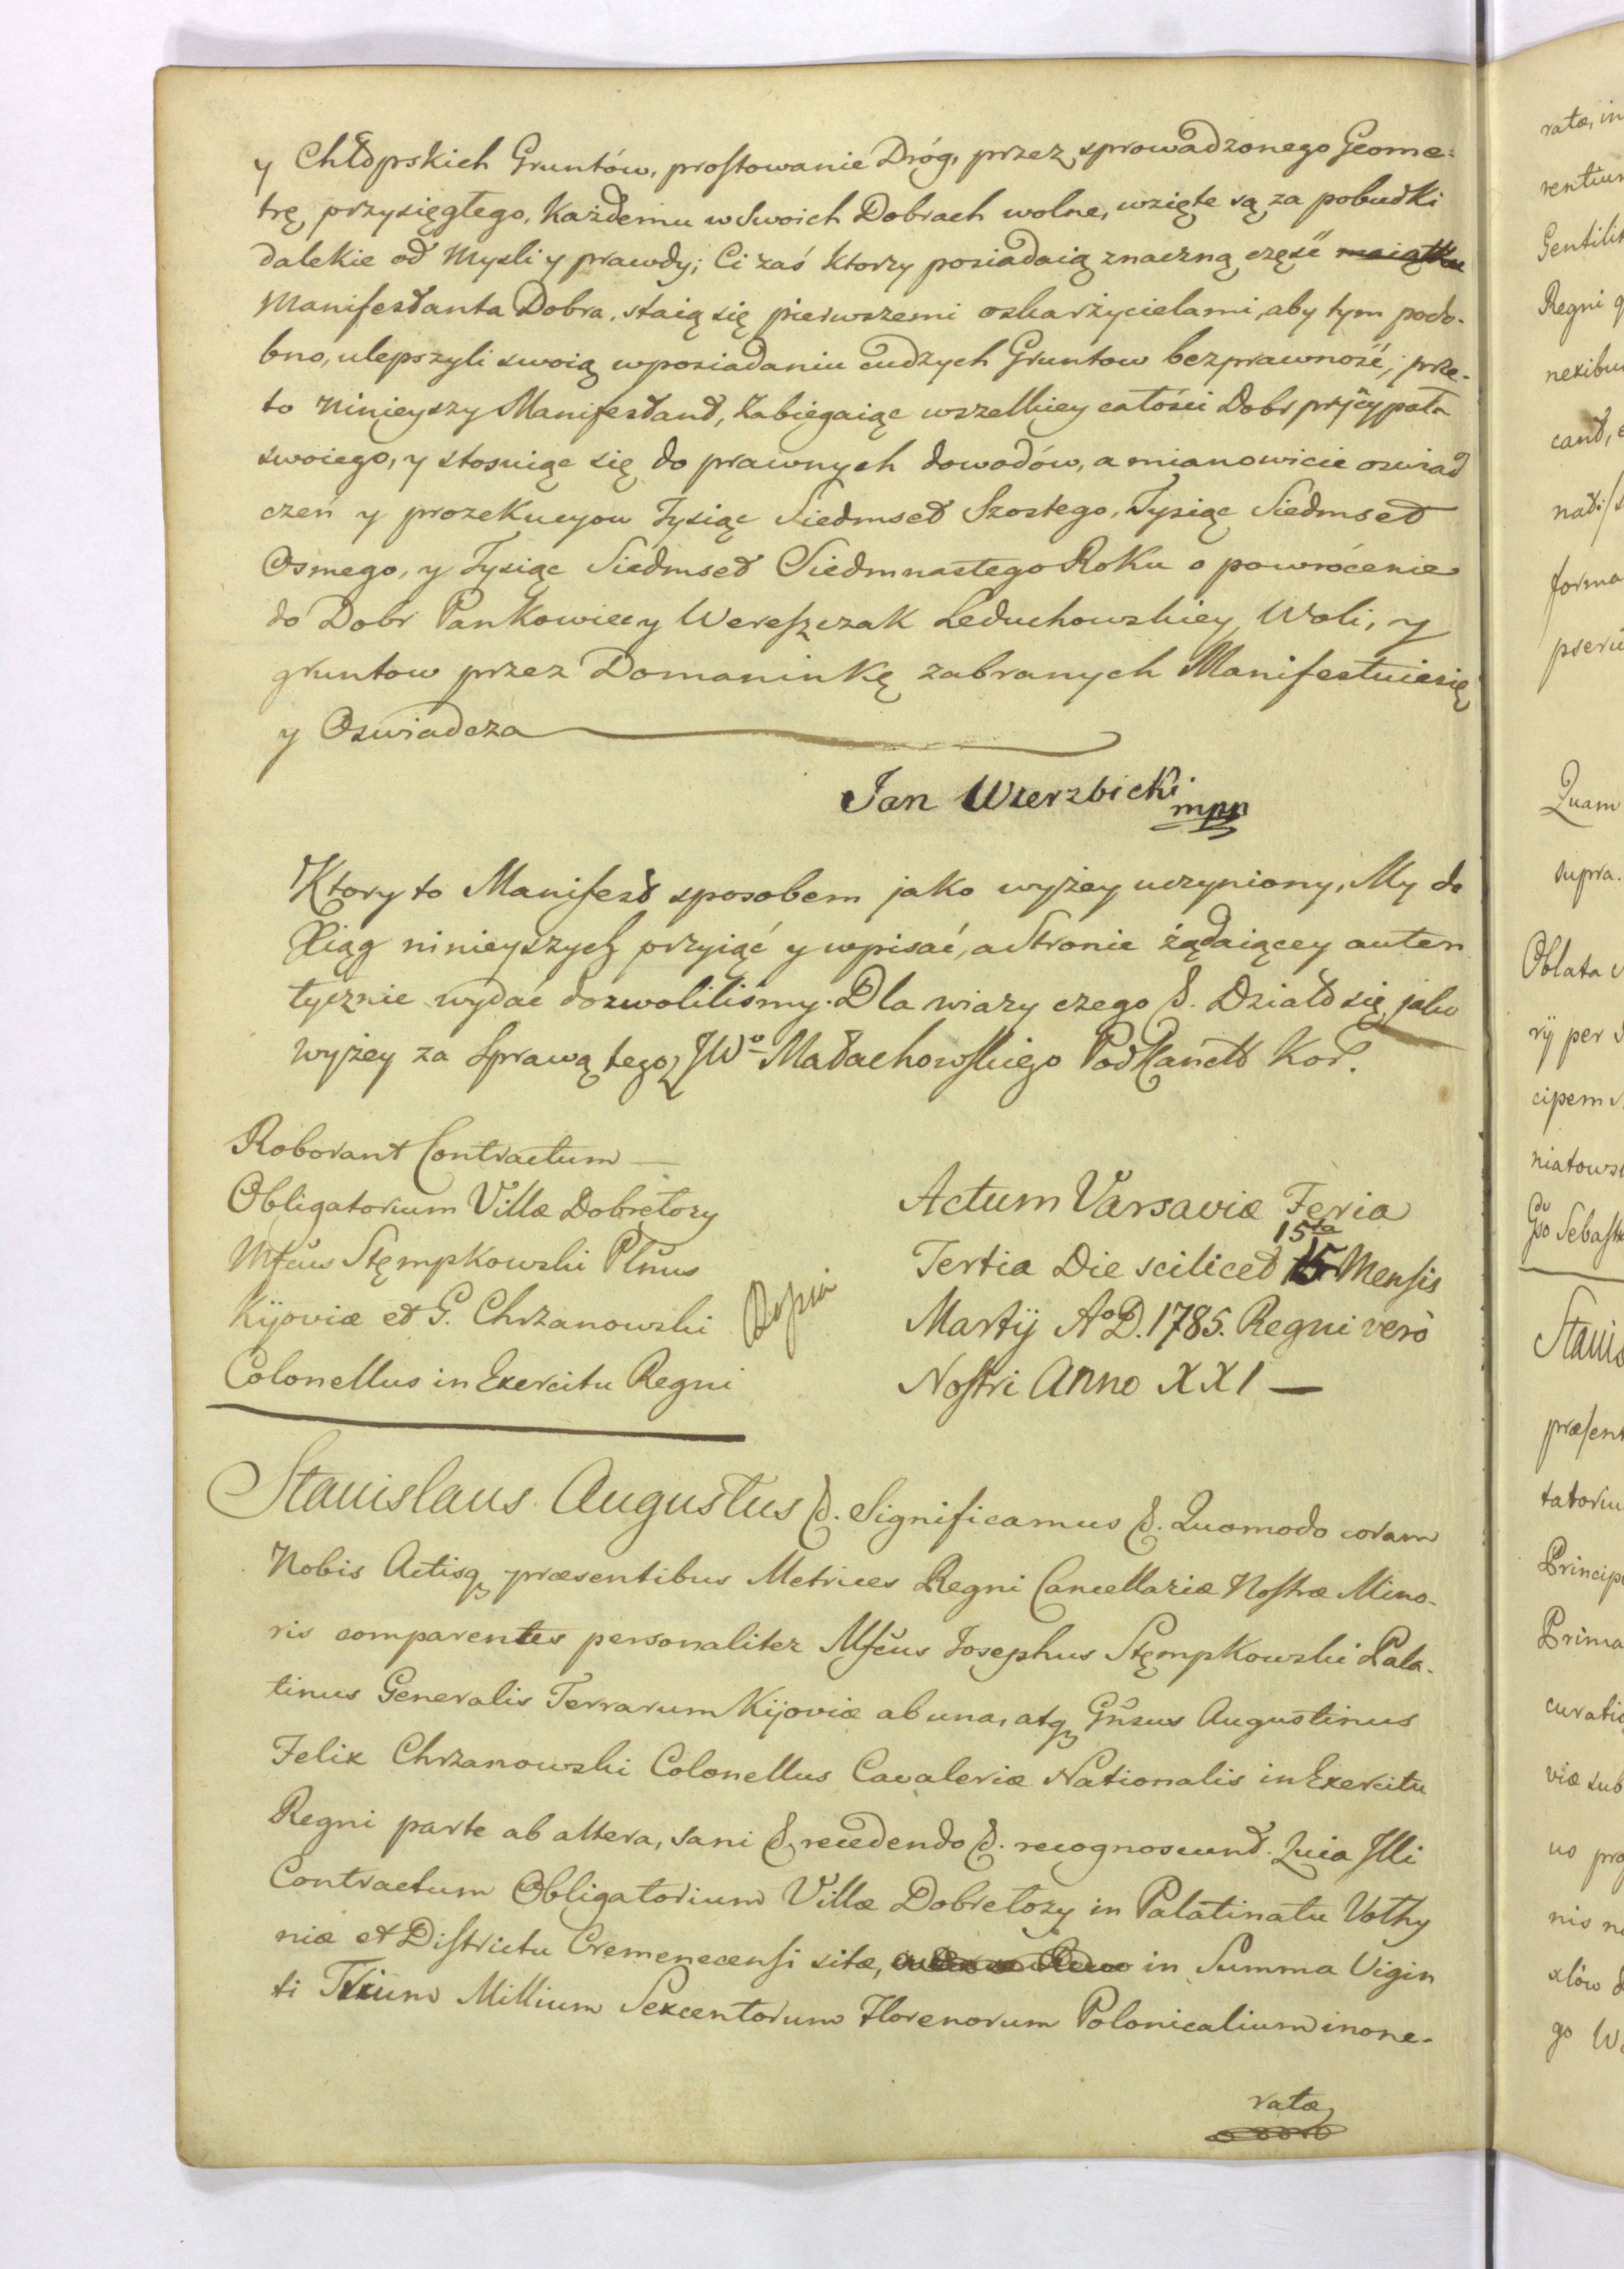 y Chłopskich Gruntów, prostowanie Dróg, przez sprowadzonego Geome=
trę przysięgłego, każdemu w Swoich Dobrach wolne, wzięte są za pobudki
dalekie od Mysli y prawdy; Ci zaś ktorzy posiadaią znaczną częsć majątku
Manifestanta Dobra, staią się pierwszemi oskarżycielami, aby tym podo-
bno, ulepszyli swoią w posiadaniu cudzych Gruntow bezprawność; prze-
to Ninieyszy Manifestant, Zabiegaiąc wszelkiey całości Dobr
swoiego, y stosuiąc się do prawnych dowodów, a mianowicie oswiad
czeń y prozekucyow Tysiąc Siedmset Szostego, Tysiąc Siedmset
Osmego, y Tysiąc Siedmset Siedmnastego Roku o powrócenie
do Dobr Pankowiec y Wereszczak Leduchowskiey Woli, y
gruntow przez Domaninkę zabranych Manifestuie się
y Oswiadcza
Jan Wierzbicki mpp
Ktory to Manifest sposobem jako wyżey uczyniony, My do
Xiąg ninieyszych przyiąć y wpisać, a Stronie żądaiącey auten
tycznie wydać dozwoliliśmy. Dla wiary czego &. Działo się jako
wyżey za Sprawą tegoż JWo Małachowskiego PodKancl Kor.
Roborant Contractum
Obligatorium Villæ Dobretozy
Mfcus Stępkowski Plnus
Kijoviæ et G. Chrzanowski
Colonellus in Exercitu Regni
Actum Varsaviæ Feria
15ta
Tertia Die scilicet 15 Mensis
Martij Ao D. 1785. Regni verò
Nostri Anno XXI
Stanislaus Augustus &. Significamus &. Quomodo coram
Nobis Actisq præsentibus Metrices Regni Cancellariæ Nostræ Mino-
ris comparentes personaliter Mfcus Josephus Stęmpkowski Pala-
tinus Generalis Terrarum Kijoviæ ab una, atq Gnsus Augustinus
Felix Chrzanowski Colonellus Cavaleriæ Nationalis in Exercitu
Regni parte ab altera, sani &. recedendo &. recognoscunt. Quia Illi
Contractum Obligatorium Villæ Dobretozy in Palatinatu Volhy
niæ et Districtu Cremenecensi sitæ, in Summa Vigin
ti Trium Millium Sexcentorum Florenorum Polonicalium inone-
ratæ
ratæ, in
rentium
Gentilit
Regni
nexibus
cant,
forma
Quam
supra.
Oblata
rij per
cipem
niatows
Gso Sebast
Stanis
præsent
tatoriu
Principi
Prima
curatio
viæ sub
us pro
nis
xlów
go